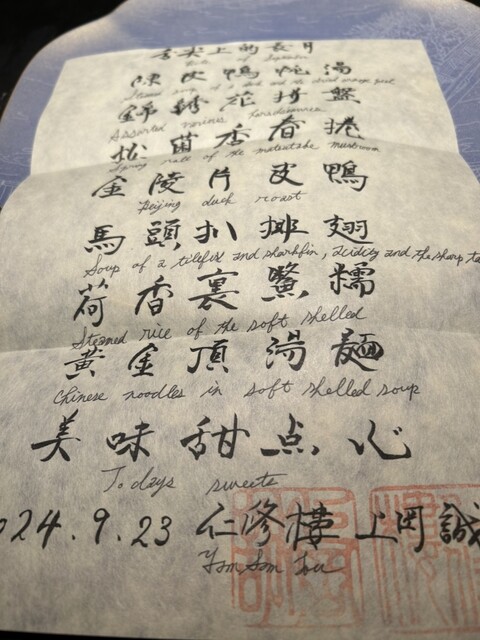 舌尖上的長月
陳皮鴨燉湯
Steamed soup of a duck and the dried orange peel
錦繡花拼盤
Assorted marines hors
松茸香春捲
Spring roll of the matsutake mushroom
金陵片皮鴨
Beijing duck roast
馬頭扒排翅
Soup of a tilefish and sharkfin, Acidity and the sharp ta
荷香裏鱉糯
Steamed rice of the soft shelled
黄金頂湯麺
Chinese noodles in soft shelled soup
美味甜点心
Todays sweets
024.9.23 仁修樓 上岡誠